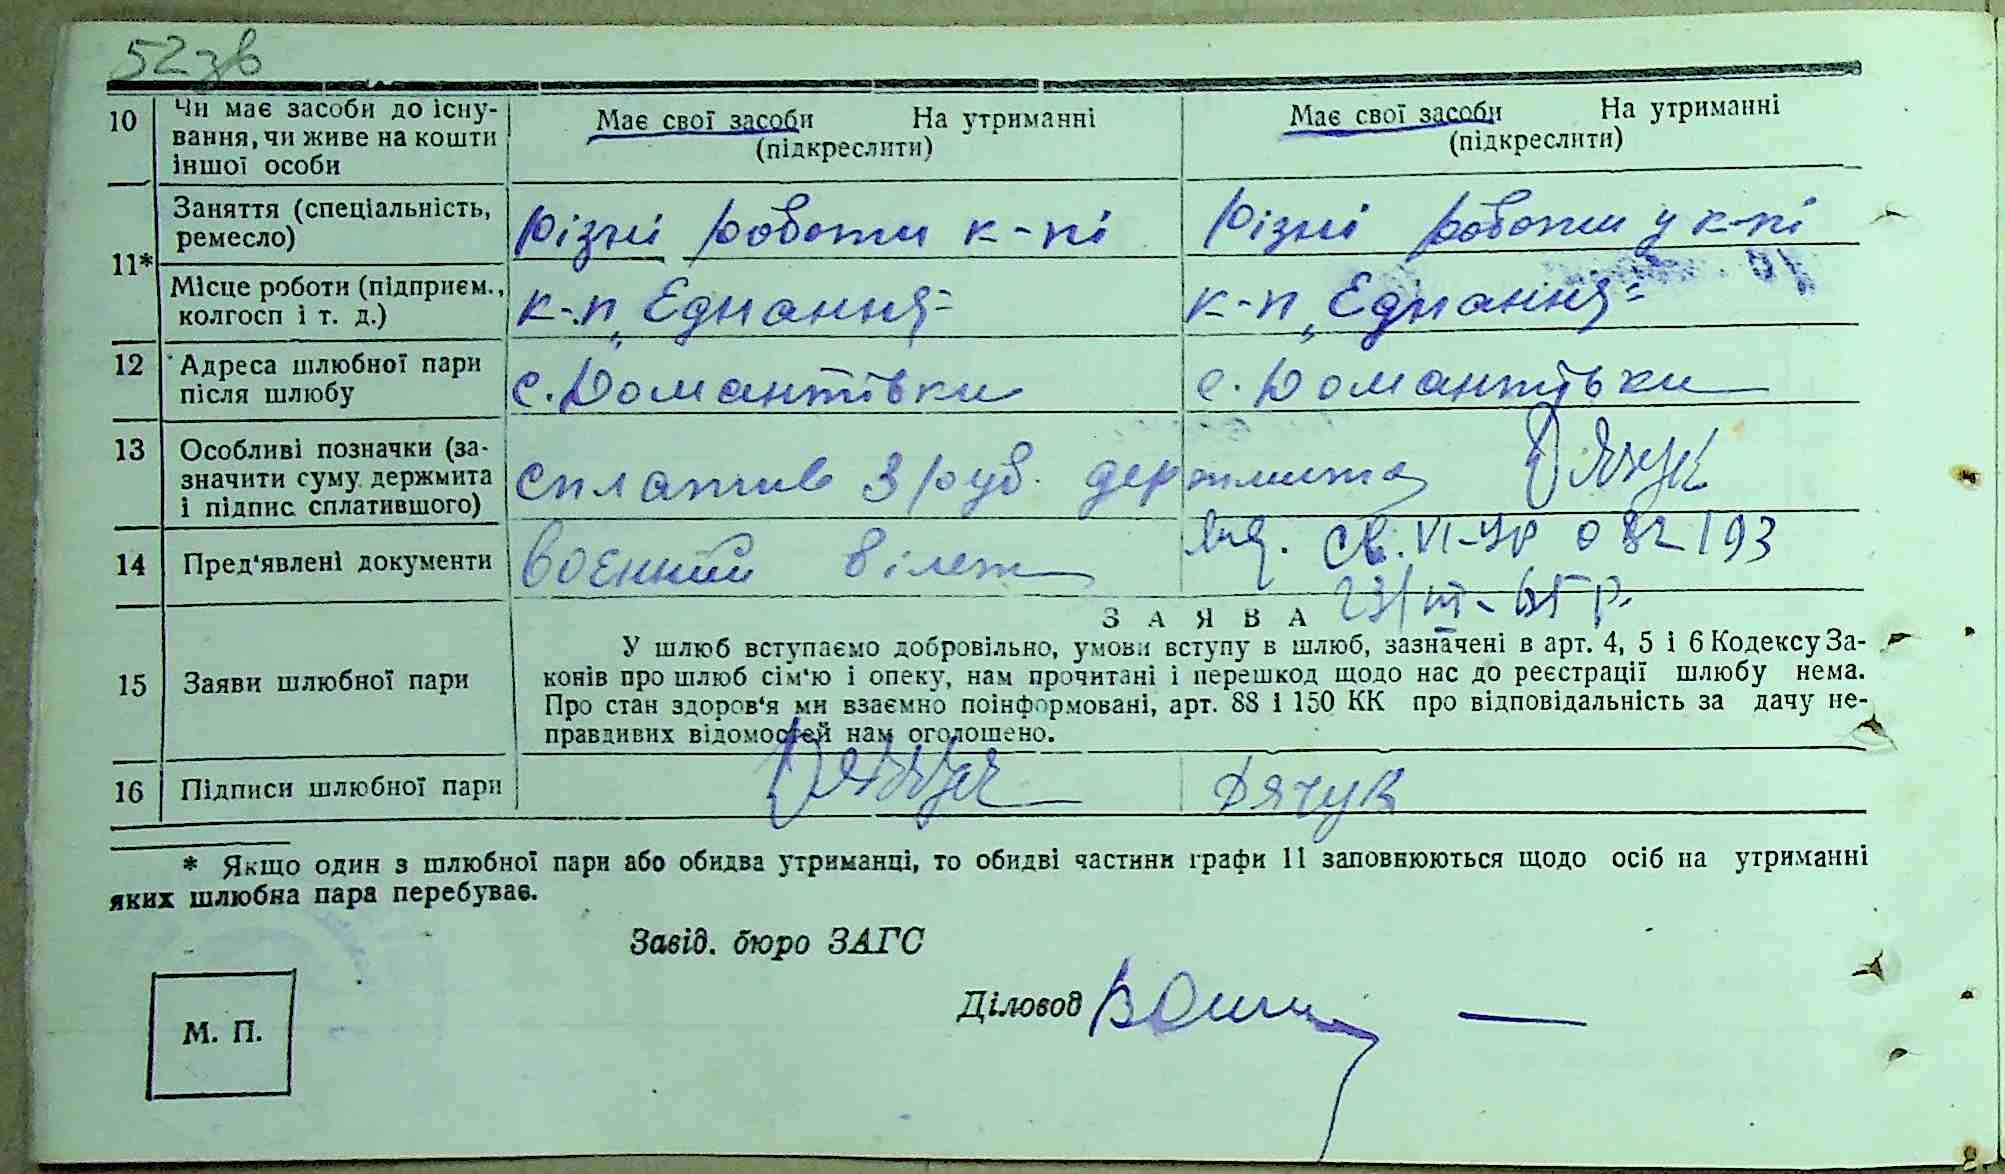 52зв
10 Чи має засоби до існу-
вання, чи живе на кошти
іншої особи
Має свої засоби На утриманні
(підкреслити)
Має свої засоби На утриманні
(підкреслити)
11*
Заняття (спеціальність,
ремесло)
Різні роботи к-пі
Різні роботи у к-пі
Місце роботи (підприєм.,
колгосп і т. д.)
к-п „Єднання"
к-п „Єднання"
12 Адреса шлюбної пари
після шлюбу
с. Домантівки
с. Домантівки
13 Особливі позначки (за-
значити суму держмита
і підпис сплатившого)
сплатив 3 руб. держмита Дячук
14 Пред'явлені документи
воєнний білет
Св. VI-УР 082193
23/III-65 р.
15 Заяви шлюбної пари
ЗАЯВА
У шлюб вступаємо добровільно, умови вступу в шлюб, зазначені в арт. 4, 5 і 6 Кодексу За-
конів про шлюб сім'ю і опеку, нам прочитані і перешкод щодо нас до реєстрації шлюбу нема.
Про стан здоров'я ми взаємно поінформовані, арт. 88 і 150 КК про відповідальність за дачу не-
правдивих відомостей нам оголошено.
16 Підписи шлюбної пари
Дячук
Дячук
* Якщо один з шлюбної пари або обидва утриманці, то обидві частини графи 11 заповнюються щодо осіб на утриманні
яких шлюбна пара перебуває.
Завід. бюро ЗАГС
Діловод
М. П.